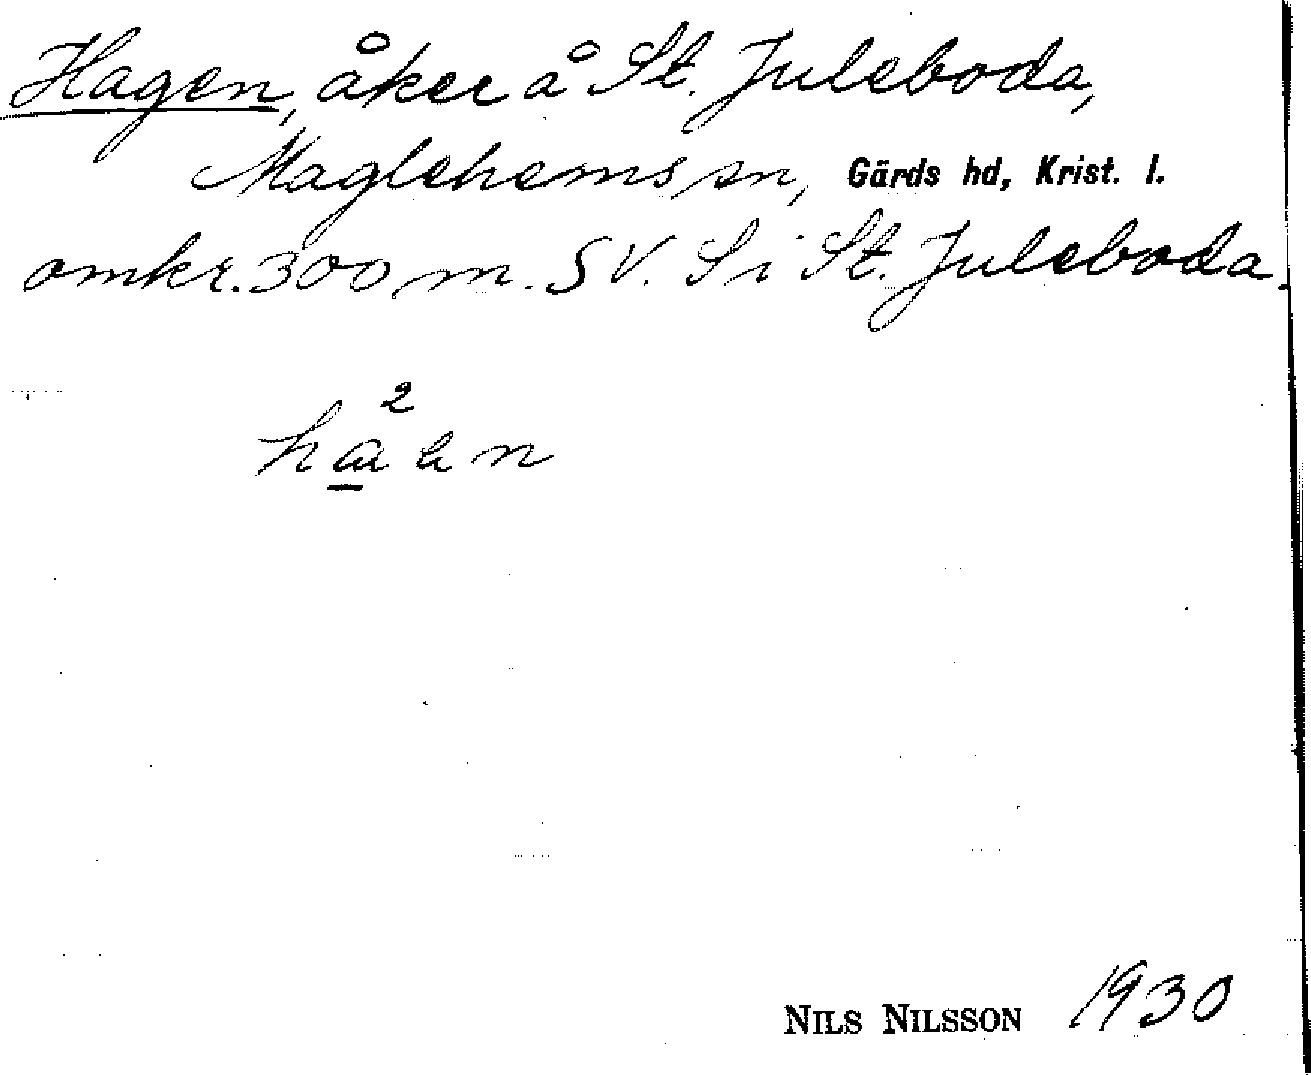 Hagen, åker å St. Juleboda,
Maglehems sn, Gärds hd, Krist. l.
omkr. 300 m. SV. S i St. Juleboda.
NILS NILSSON 1930